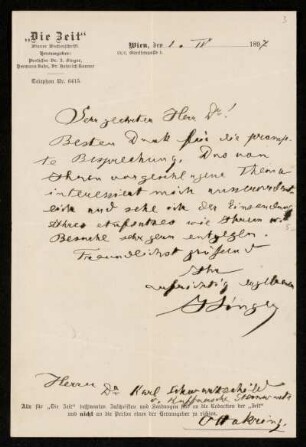 „Die Zeit"
Wiener Wochenschrift.
Herausgeber:
Professor Dr. I. Singer,
Hermann Bahr, Dr. Heinrich Kanner
Telephon Nr. 6415.
Wien, den 1. IV 1897
IX/3, Günthergasse 1.
Sehr geehrter Herr Dr!
Besten Dank für die promp-
te Besprechung. Das von
Ihnen vorgeschlagene Thema
interessiert mich ausserordent-
lich und sehe ich der Einsendung
Ihres Aufsatzes wie Ihrem
Besuche sehr gern entgegen.
Freundlichst grüssend
Ihr
aufrichtig ergebener
Singer
Herrn Dr Karl Schwarzschild
Kuffnersche Sternwarte
Ottakring.
Alle für „Die Zeit" bestimmten Zuschriften und Sendungen sind an die Redaction der „Zeit"
und nicht an die Person eines der Herausgeber zu richten.